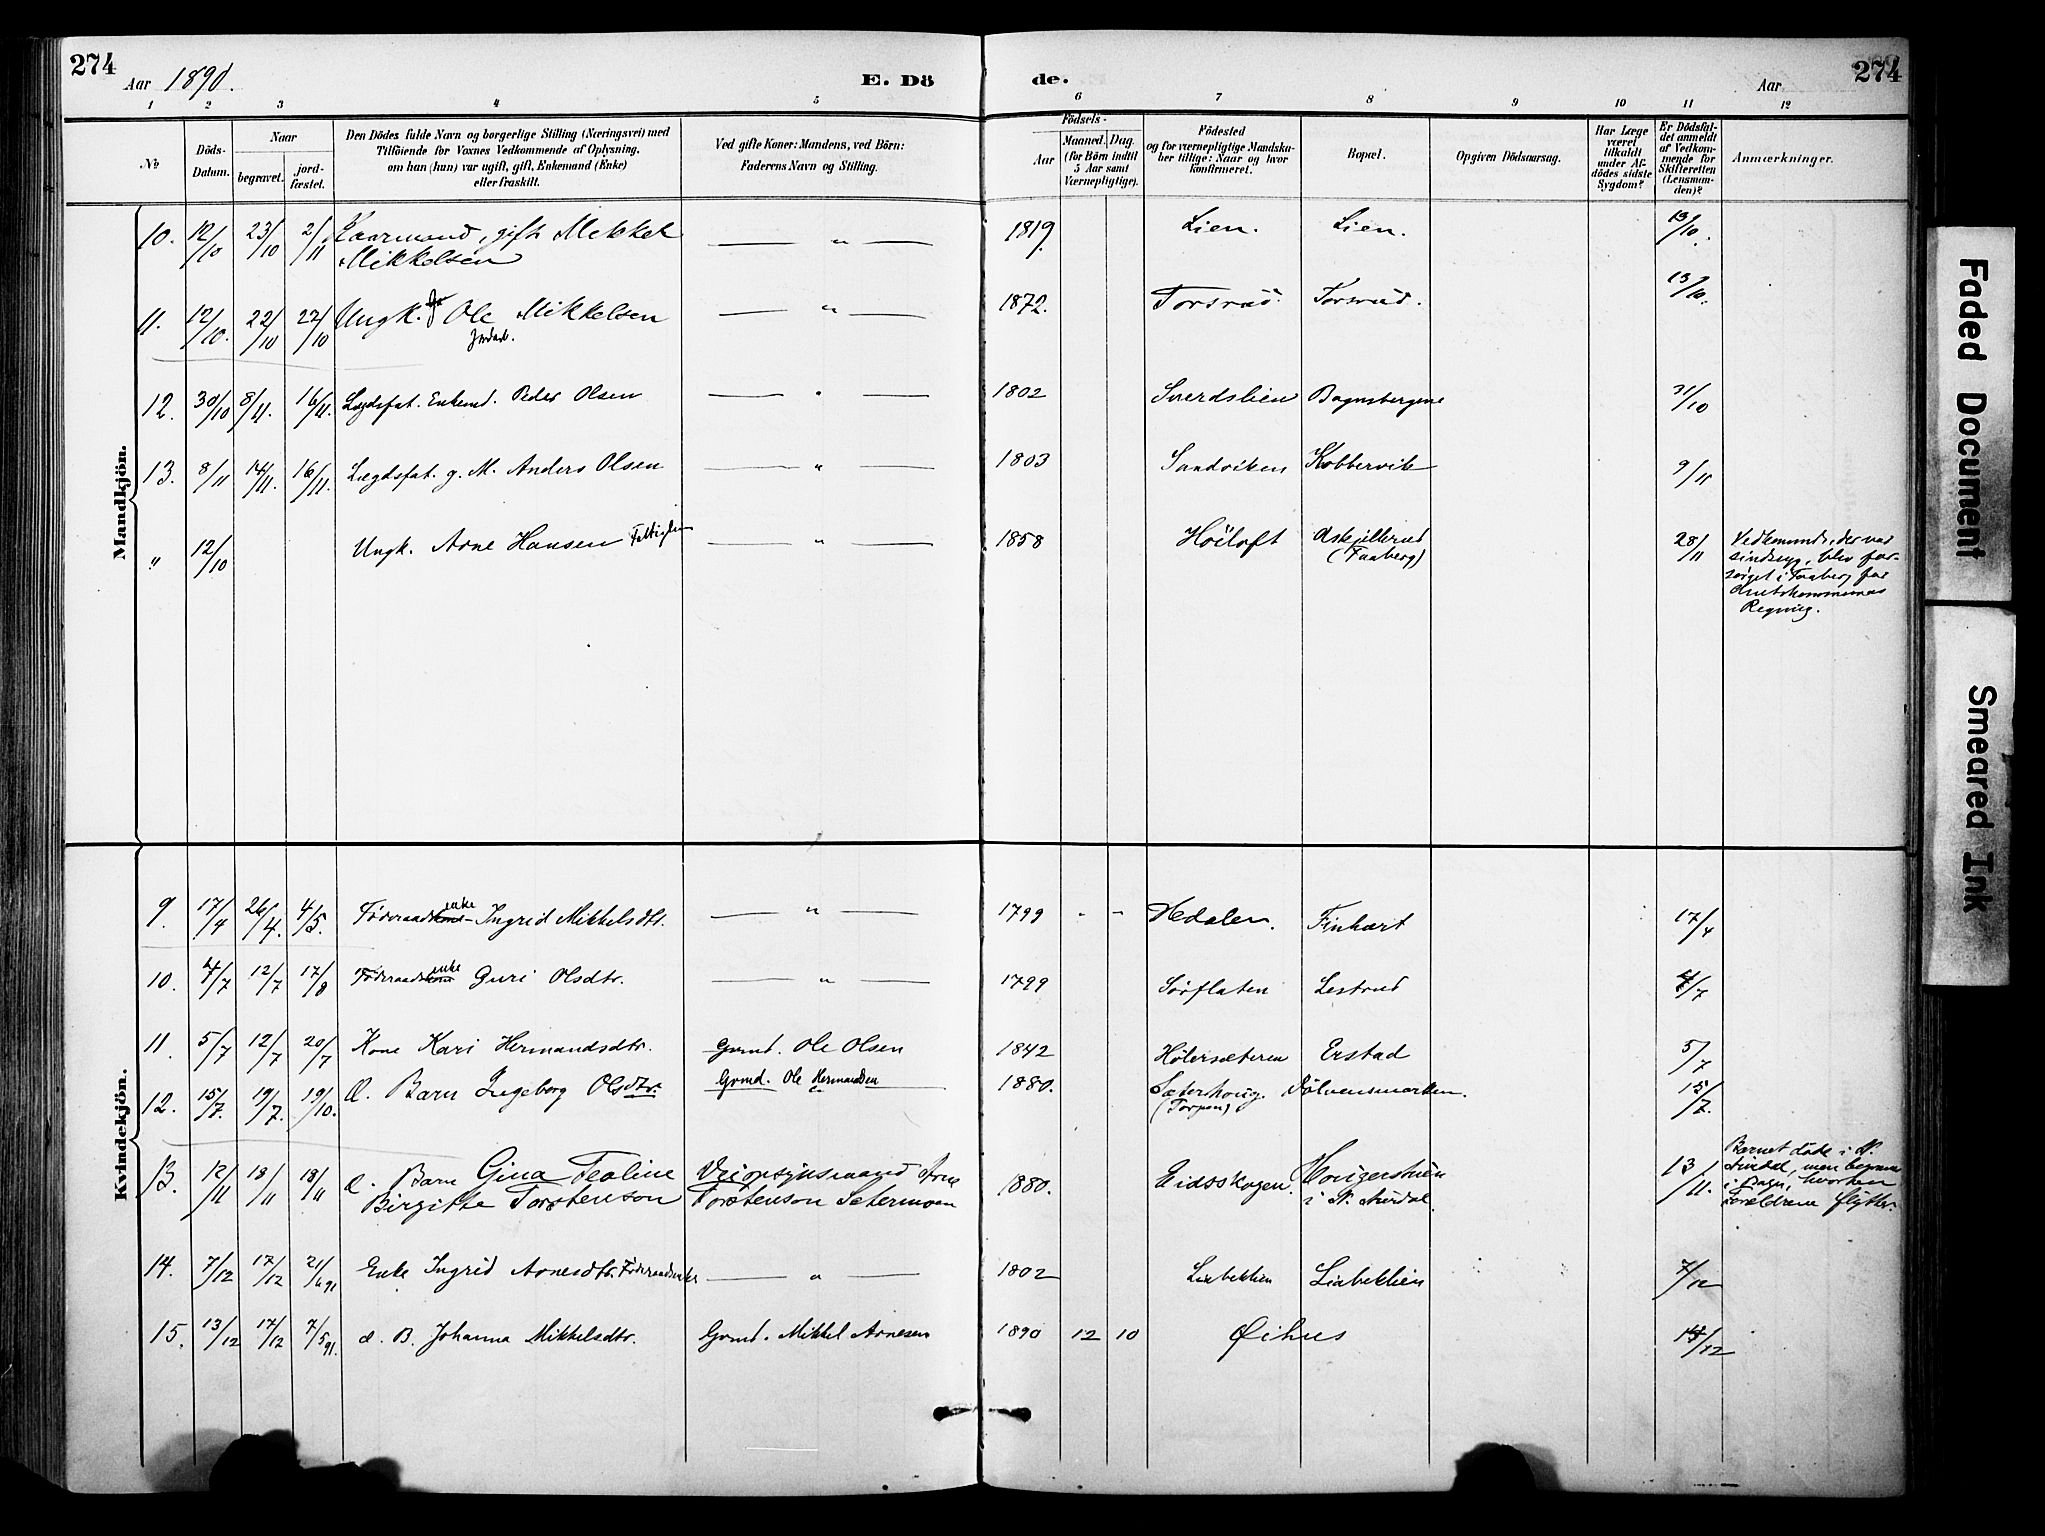 274
Aar 1890.
E. Dö
de.
Aar
274
1 2 3 4 5 6 7 8 9 10 11 12
No
Döds-Datum.
Naar
begravet.
jord-fæstet.
Den Dödes fulde Navn og borgerlige Stilling (Næringsvei) med
Tilföiende for Voxnes Vedkommende af Oplysning,
om han (hun) var ugift, gift, Enkemand (Enke)
eller fraskilt.
Ved gifte Koner: Mandens, ved Börn:
Faderens Navn og Stilling.
Födsels-
Aar
Maaned. Dag.
(for Börn indtil
5 Aar samt
Værnepligtige).
Födested
og for værnepligtige Mandska-
ber tillige: Naar og hvor
konfirmeret.
Bopæl.
Opgiven Dödsaarsag.
Har Læge
været
tilkaldt
under Af-
dödes sidste
Sygdom?
Er Dödsfal-
det anmeldt
af Vedkom-
mende for
Skifteretten
(Lensman-
den)?
Anmærkninger.
Mandkjön.
10. 12/10 23/10 2/11 Kaarmand, gift Mikkel — " — 1819. Lien. Lien. 13/10.
Mikkelsen
11. 12/10. 22/10 22/10 Ungk. Ole Mikkelsen — " — 1872. Torsrud. Torsrud. 13/10.
12. 30/10 8/11. 16/11. Lægdsfat. Enkemd. Peder Olsen — " — 1802 Sverdslien Bagnsbergene 31/10
13. 8/11 14/11. 16/11. Lægdsfat. g. M. Anders Olsen — " — 1803 Sandviken Kobbervik 9/11
" 12/10 Ungk. Arne Hansen Fattiglem — " — 1858 Höiloft Askjellerud 28/11 Vedkommende, der var
(Faaberg) sindssyg, blev for-
sörget i Faaberg for
Amtskommunens
Regning.
Kvindekjön.
9. 17/4 26/4. 4/5. Föderaadsenke Ingrid Mikkelsdtr. — " — 1799 - - Hedalen. Finhart 17/4
10. 4/7 12/7 17/8 Föderaadsenke Guri Olsdtr. — " — 1799 Sörflaten Lestrud 4/7
11. 5/7 12/7 20/7 Kone Kari Hermandsdtr. Grmd. Ole Olsen 1842 Hölersæteren Erstad 5/7
12. 15/7. 19/7. 19/10. Æ. Barn Ingeborg Olsdtr. Grmd. Ole Hermandsen 1880. Sæterhoug. Dölvensmarken. 15/7.
(Torpen)
13. 12/11 18/11 18/11 Æ. Barn Gina Tealine Veiopsynsmand Arne 1880. Eidsskogen. 13/11. Barnet döde i N.
Birgitte Torstenson Torstenson Setermoen i N. Aurdal. Aurdal, men begrav.
i Bagn, hvorhen
Forældrene flytter.
14. 7/12 17/12 21/6 91 Enke Ingrid Arnesdtr. Föderaadsenke — " — 1802 Liabekkien Liabekkien 7/12
15. 13/12 17/12 7/5 91. æ. B. Johanna Mikkelsdtr. Grmd. Mikkel Arnesen 1890 12 10 Øihus /12
Faded Document
Smeared Ink